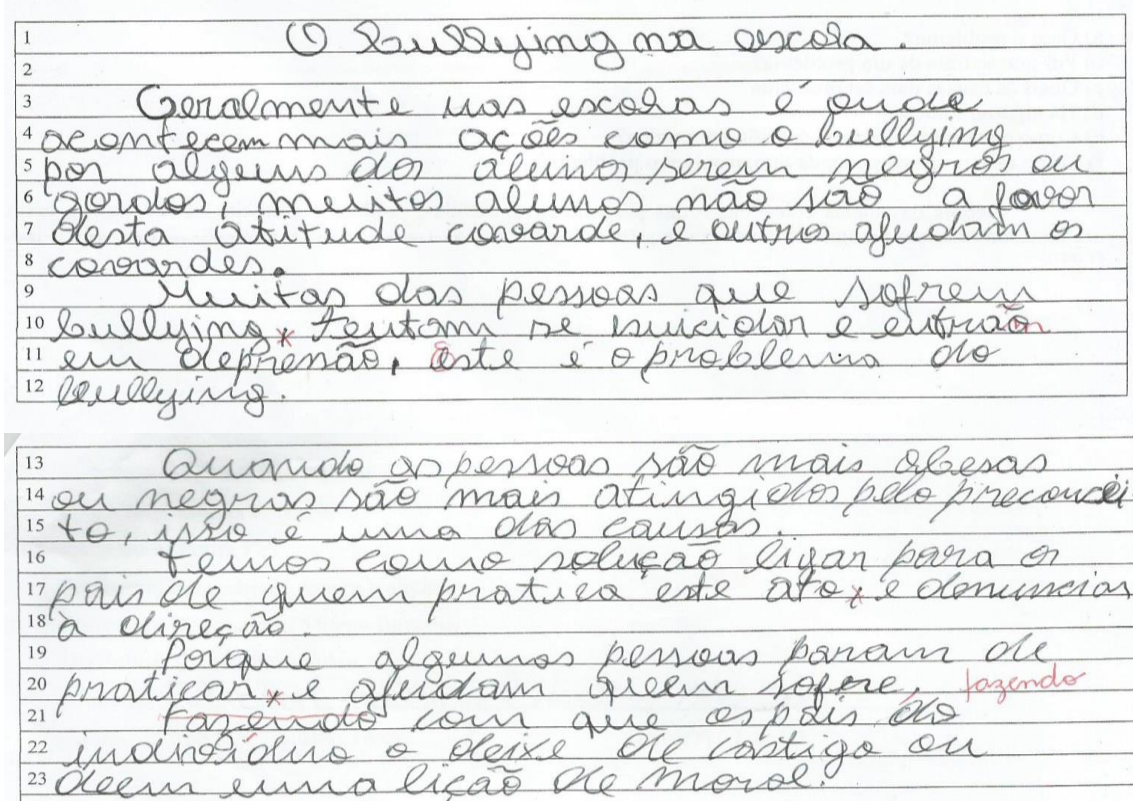 1 O bullying na escola.
2
3 Geralmente nas escolas é onde
4 acontecem mais ações como o bullying
5 por alguns dos alunos serem negros ou
6 gordos, muitos alunos não são a favor
7 desta atitude covarde, e outros ajudam os
8 covardes.
9 Muitas das pessoas que sofrem
10 bullying x tentam se suicidar e entrão m
11 em depressão, Este é o problema do
12 bullying.
13 Quando as pessoas são mais obesas
14 ou negras são mais atingidos pelo preconcei
15 to, isso é uma das causas.
16 Temos como solução ligar para os
17 pais de quem pratica este ato x e denunciar
18 à direção.
19 Porque algumas pessoas param de
20 praticar x e ajudam quem sofre. fazendo
21 Fazendo com que os pais do
22 indivíduo o deixe de castigo ou
23 deem uma lição de moral.